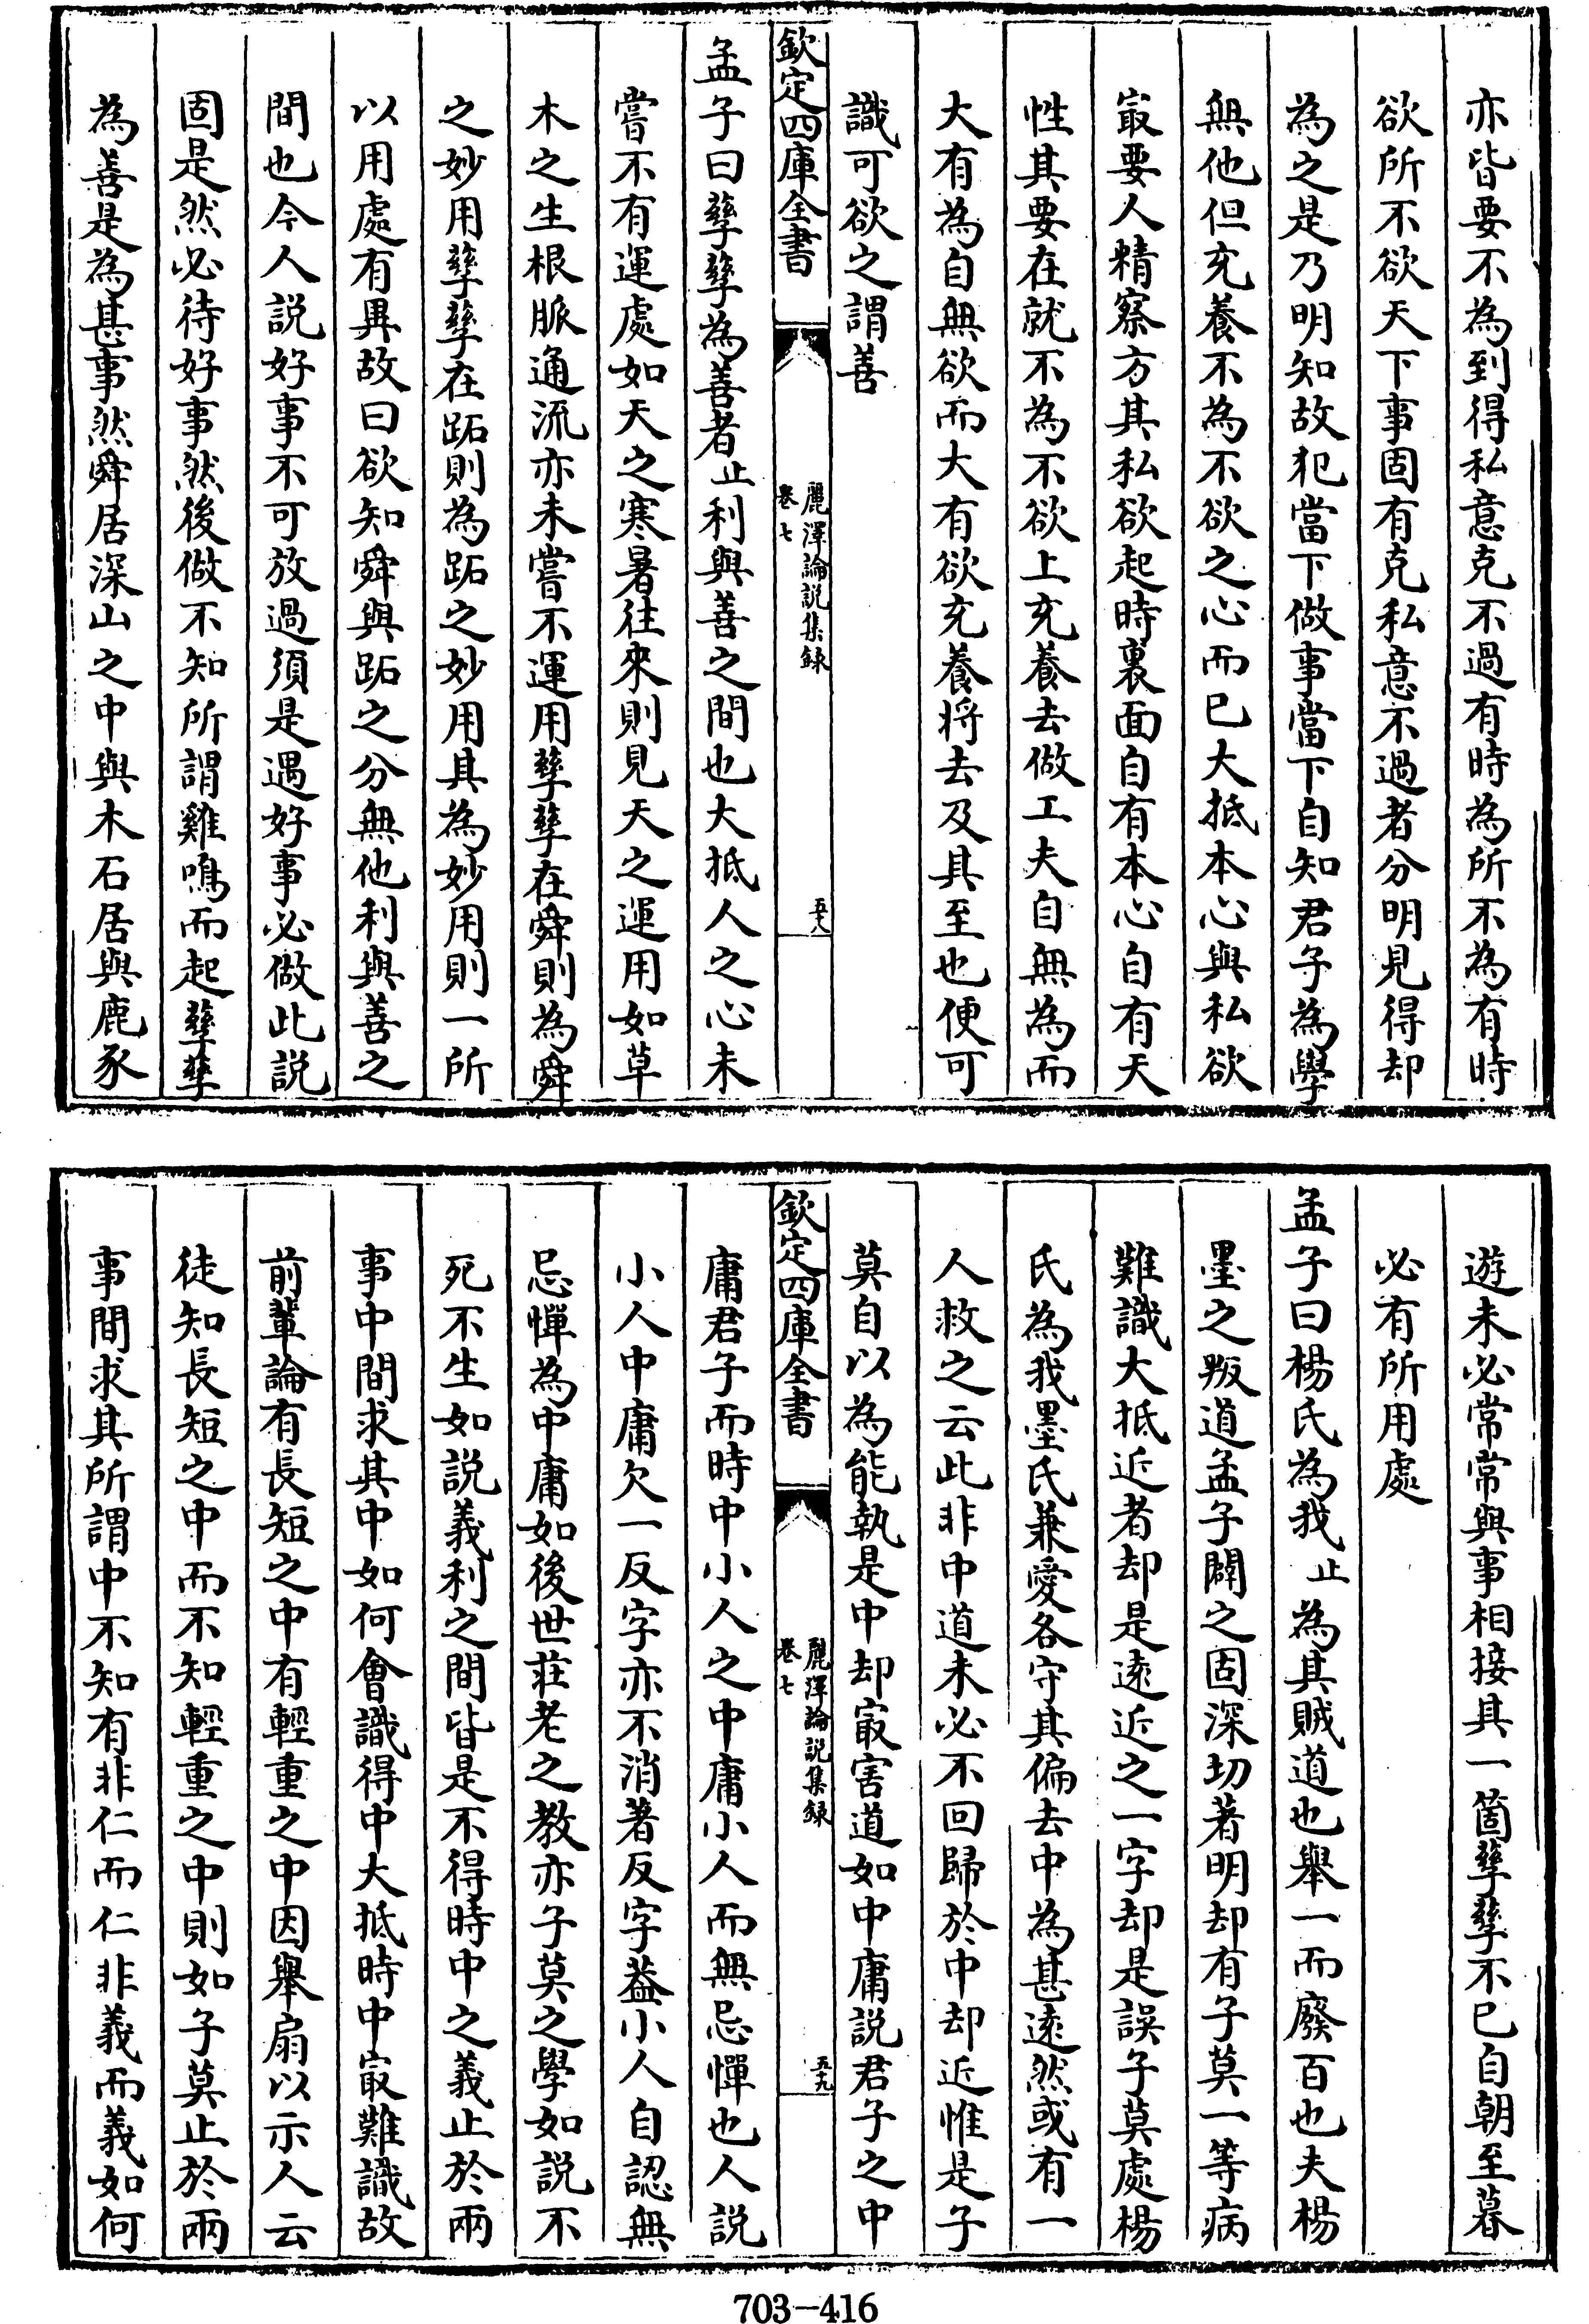 亦皆要不為到得私意克不過有時為所不為有時
欲所不欲天下事固有克私意不過者分明見得却
為之是乃明知故犯當下做事當下自知君子為學
無他但充養不為不欲之心而已大抵本心與私欲
㝡要人精察方其私欲起時裏面自有本心自有天
性其要在就不為不欲上充養去做工夫自無為而
大有為自無欲而大有欲充養将去及其至也便可
識可欲之謂善
欽定四庫全書
麗澤論説集録
卷七
五十八
孟子曰孳孳為善者止利與善之間也大抵人之心未
嘗不有運處如天之寒暑往來則見天之運用如草
木之生根脈通流亦未嘗不運用孳孳在舜則為舜
之妙用孳孳在跖則為跖之妙用其為妙用則一所
以用處有異故曰欲知舜與跖之分無他利與善之
間也今人説好事不可放過須是遇好事必做此説
固是然必待好事然後做不知所謂雞鳴而起孳孳
為善是為甚事然舜居深山之中與木石居與鹿豕
遊未必常常與事相接其一箇孳孳不已自朝至暮
必有所用處
孟子曰楊氏為我止為其賊道也舉一而廢百也夫楊
墨之叛道孟子闢之固深切著明却有子莫一等病
難識大抵近者却是逺近之一字却是誤子莫處楊
氏為我墨氏兼愛各守其偏去中為甚逺然或有一
人救之云此非中道未必不回歸於中却近惟是子
莫自以為能執是中却㝡害道如中庸説君子之中
欽定四庫全書
麗澤論説集録
卷七
五十九
庸君子而時中小人之中庸小人而無忌憚也人説
小人中庸欠一反字亦不消著反字葢小人自認無
忌憚為中庸如後世莊老之教亦子莫之學如説不
死不生如説義利之間皆是不得時中之義止於兩
事中間求其中如何會識得中大抵時中㝡難識故
前輩論有長短之中有輕重之中因舉扇以示人云
徒知長短之中而不知輕重之中則如子莫止於兩
事間求其所謂中不知有非仁而仁非義而義如何
703-416